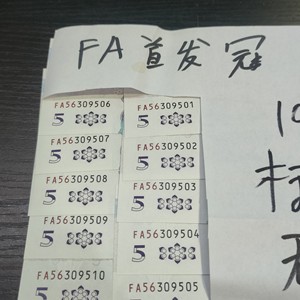 FA首发冠
FA56309506
5
FA56309501
5
FA56309507
5
FA56309502
5
FA56309508
5
FA56309503
5
FA56309509
5
FA56309504
5
FA56309510
FA56309505
5
10